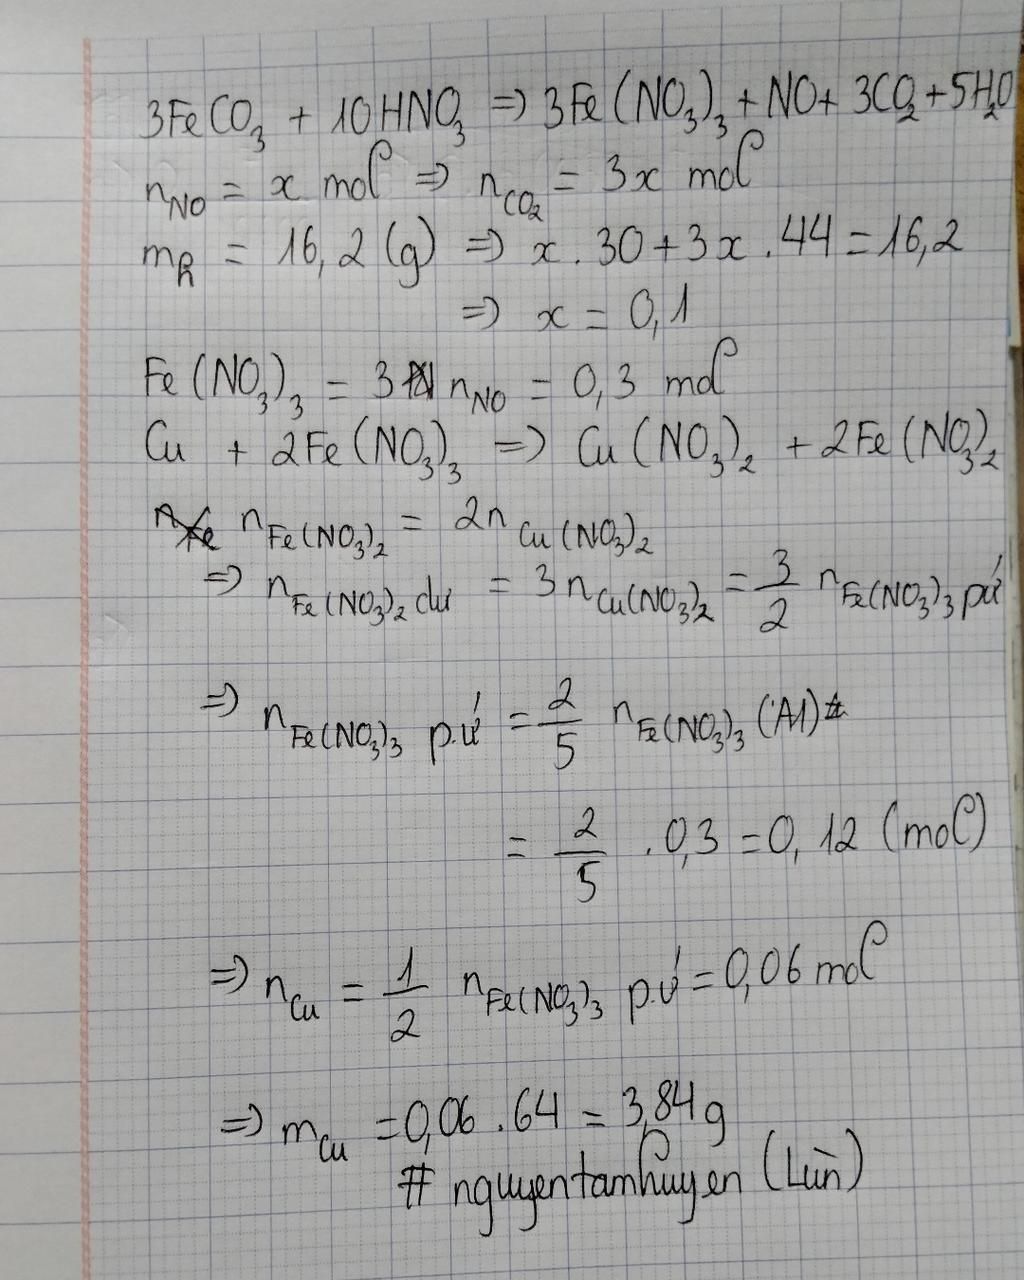 3FeCO₃ + 10HNO₃ => 3Fe(NO₃)₃ + NO + 3CO₂ + 5H₂O
n_NO = x mol => n_CO₂ = 3x mol
m_R = 16,2 (g) => x . 30 + 3x . 44 = 16,2
=> x = 0,1
Fe(NO₃)₃ = 3 n_NO = 0,3 mol
Cu + 2Fe(NO₃)₃ => Cu(NO₃)₂ + 2Fe(NO₃)₂
n_Fe(NO₃)₂ = 2n_Cu(NO₃)₂
=> n_Fe(NO₃)₂ dư = 3n_Cu(NO₃)₂ = 3/2 n_Fe(NO₃)₃ pứ
=> n_Fe(NO₃)₃ p.ứ = 2/5 n_Fe(NO₃)₃ (A1)
= 2/5 . 0,3 = 0,12 (mol)
=> n_Cu = 1/2 n_Fe(NO₃)₃ p.ứ = 0,06 mol
=> m_Cu = 0,06 . 64 = 3,84g
# nguyentamhuyen (Lùn)